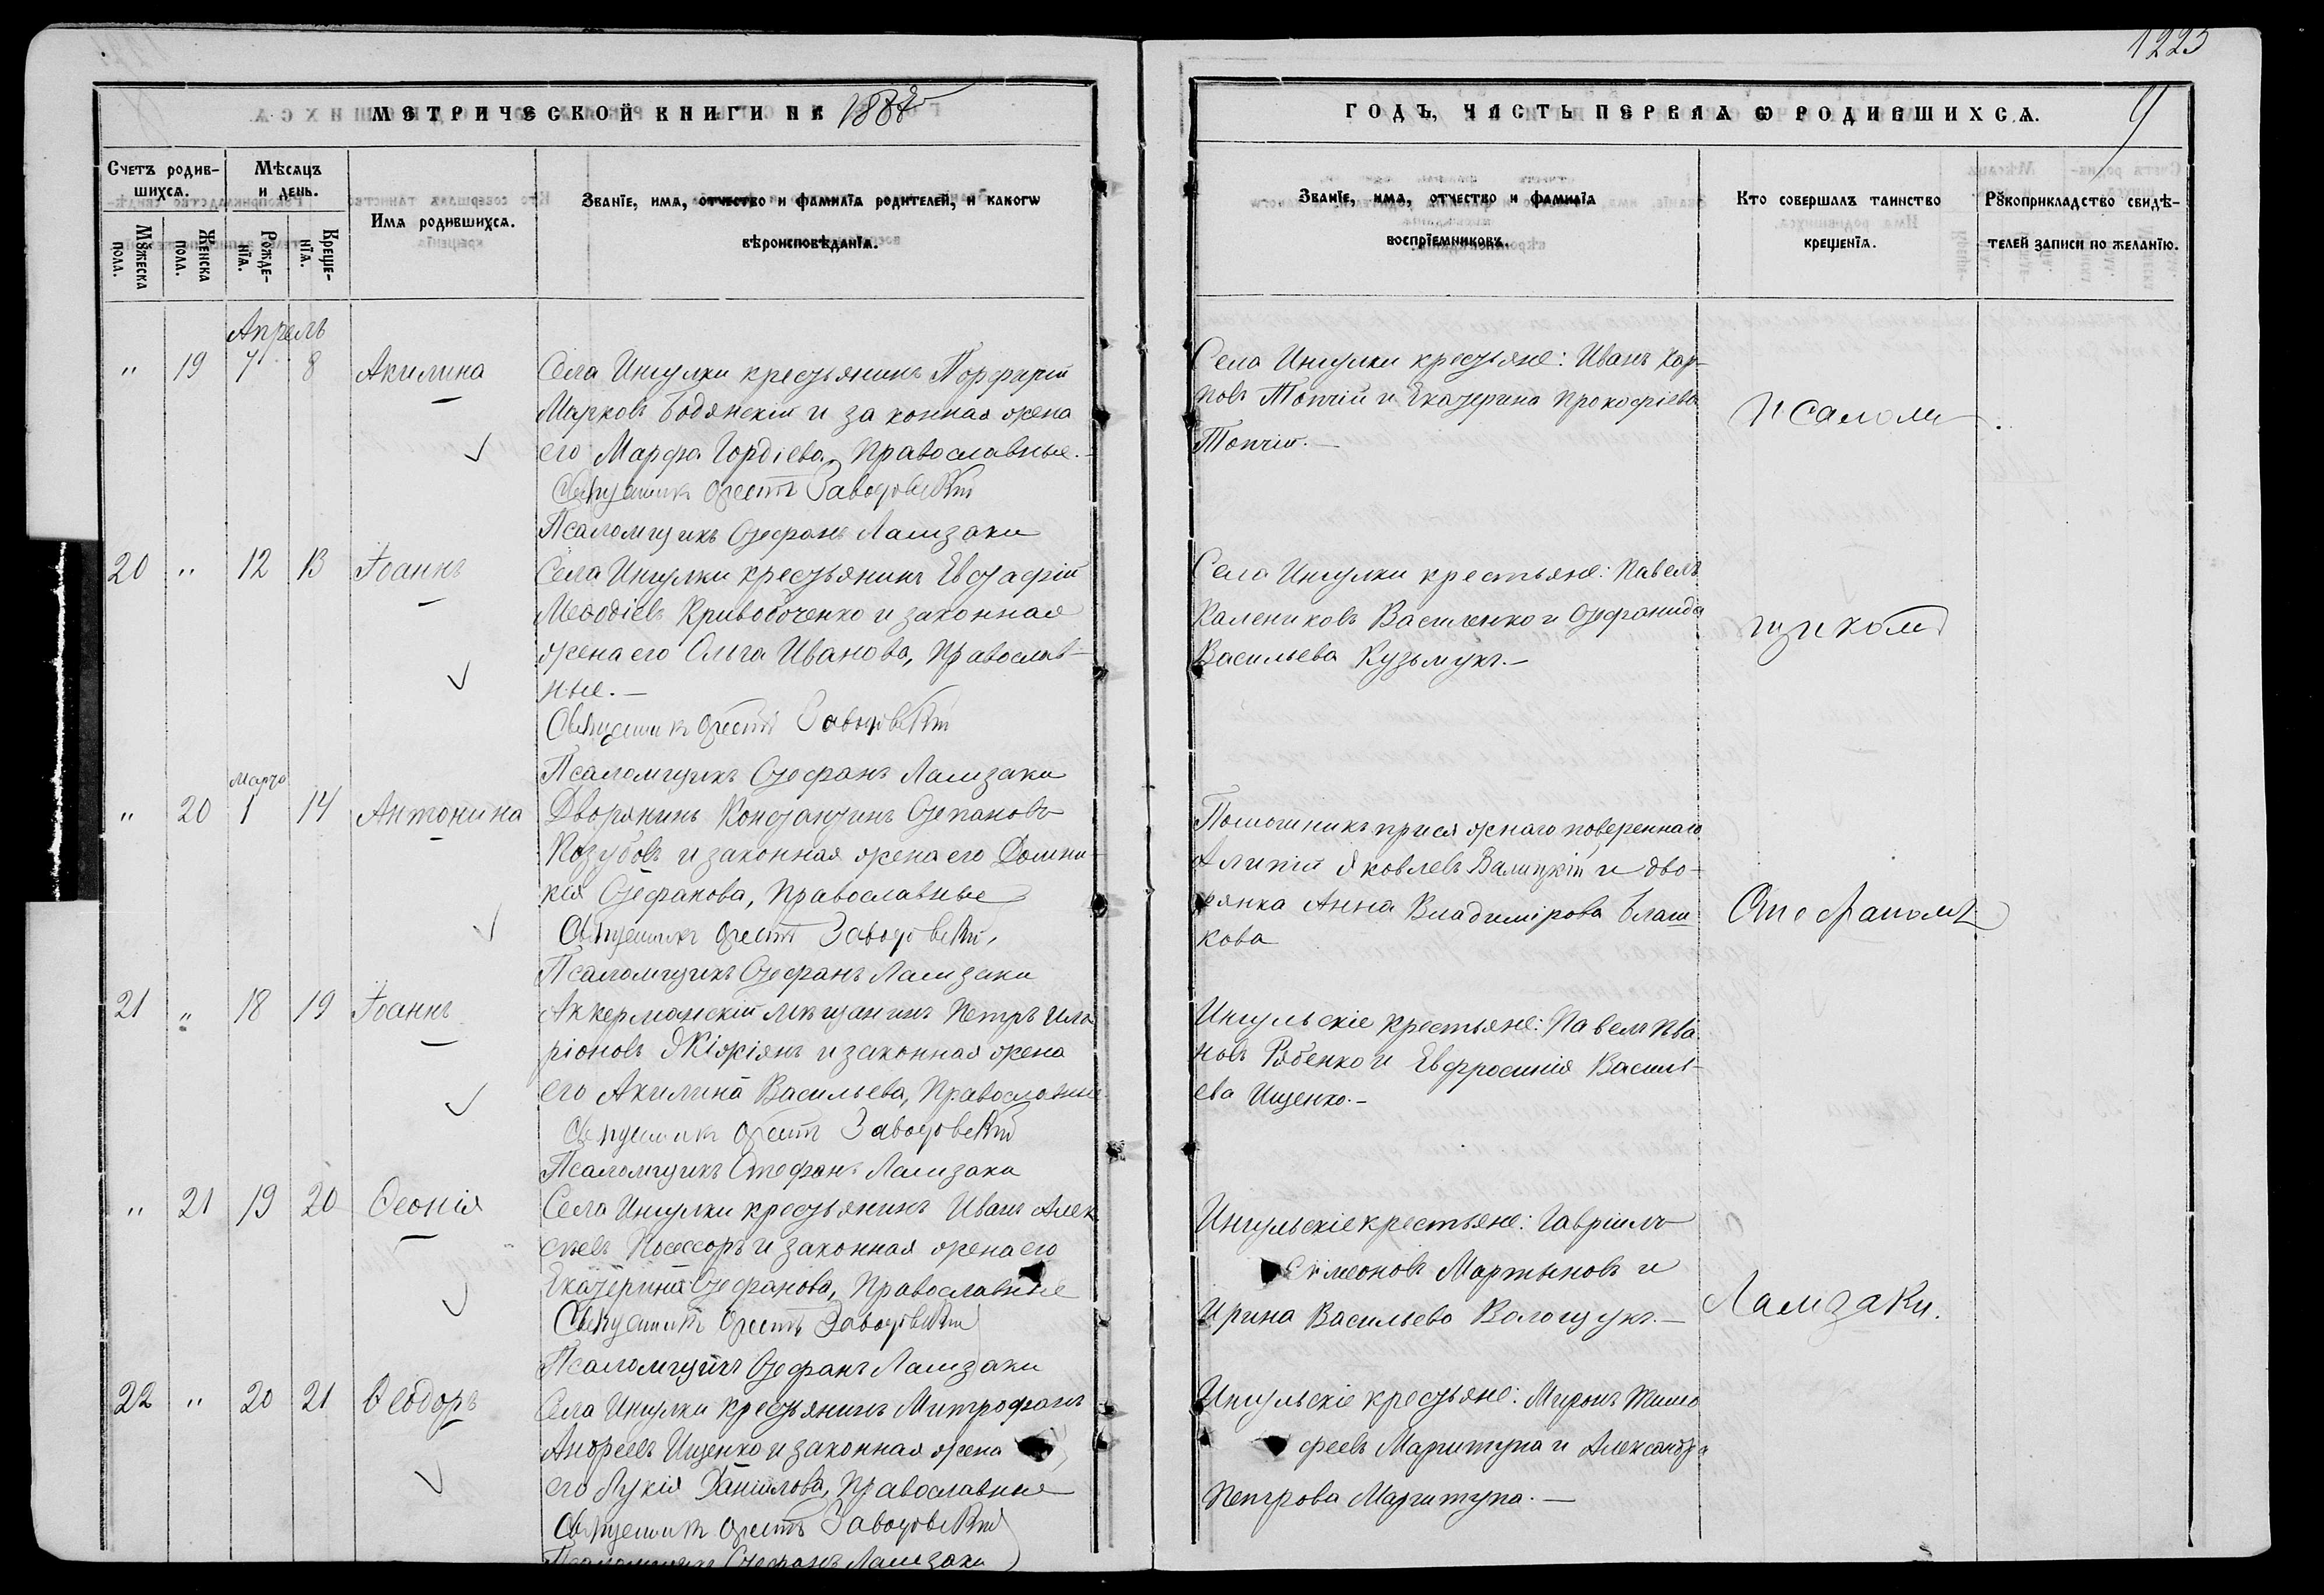 1223
МЕТРИЧЕСКОЙ КНИГИ НА 1887
ГОДЪ, ЧАСТЬ ПЕРВАЯ Ѡ РОДИВШИХСѦ.
9
Счетъ родив-
шихсѧ.
Мꙋжеска пола.
Женска пола.
Мѣсѧцъ
и день.
Рожде-
нїѧ.
Креще-
нїѧ.
Имѧ родившихсѧ.
Званїе, имѧ, отчество и фамилїѧ родителей, и какогѡ
вѣроисповѣданїѧ.
Званїе, имѧ, отчество и фамилїѧ
воспрїемниковъ.
Кто совершалъ таинство
крещенїѧ.
Рꙋкоприкладство свидѣ-
телей записи по желанїю.
Апрель
" 19 7 8 Акилина
Села Ингулки крестьянинъ Порфирій
Марковъ Бодянскій и законная жена
его Марфа Гордіева, Православные.-
Священникъ Орестъ Заводовскій
Псаломщикъ Стефанъ Ламзаки
Села Ингулки крестьяне: Иванъ Кар-
повъ Топчій и Екатерина Прокофіева
Топчій.-
Псаломъ
20 " 12 13 Іоаннъ
Села Ингулки крестьянинъ Евстафій
Меѳодіевъ Кривобоченко и законная
жена его Ольга Иванова, Православ-
ные.-
Священникъ Орестъ Заводовскій
Псаломщикъ Стефанъ Ламзаки
Села Ингулки крестьяне: Павелъ
Калениковъ Василенко и Стефанида
Васильева Кузьмукъ.-
щикомъ
Марта
" 20 1 14 Антонина
Дворянинъ Константинъ Степановъ
Козубовъ и законная жена его Домни-
кія Стефанова, Православные
Священникъ Орестъ Заводовскій,
Псаломщикъ Стефанъ Ламзаки
Помощникъ присяжнаго повереннаго
Алипій Яковлевъ Валицкій и дво-
рянка Анна Владимірова Блаш-
кова
Стефаномъ
21 " 18 19 Іоаннъ
Аккерманскій мѣщанинъ Петръ Ила
ріоновъ и законная жена
его Акилина Васильева, Православные
Священникъ Орестъ Заводовскій
Псаломщикъ Стефанъ Ламзаки
Ингульскіе крестьяне: Павелъ Ива
новъ Рябенко и Евфросинія Василь-
ева Ищенко.-
" 21 19 20 Ѳеонія
Села Ингулки крестьянинъ Иванъ Алек
сѣевъ Посессоръ и законная жена его
Екатерина Стефанова, Православные
Священникъ Орестъ Заводовскій
Псаломщикъ Стефанъ Ламзаки
Ингульскіе крестьяне: Гавріилъ
Симеоновъ Мартыновъ и
Ирина Васильева Волощукъ.-
Ламзаки.
22 " 20 21 Ѳеодоръ
Села Ингулки крестьянинъ Митрофанъ
Андреевъ Ищенко и законная жена
его Лукія Даніилова, Православные
Священникъ Орестъ Заводовскій
Псаломщикъ Стефанъ Ламзаки
Ингульскіе крестьяне: Миронъ Тимо
феевъ Маргитура и Александра
Петрова Маргитура.-